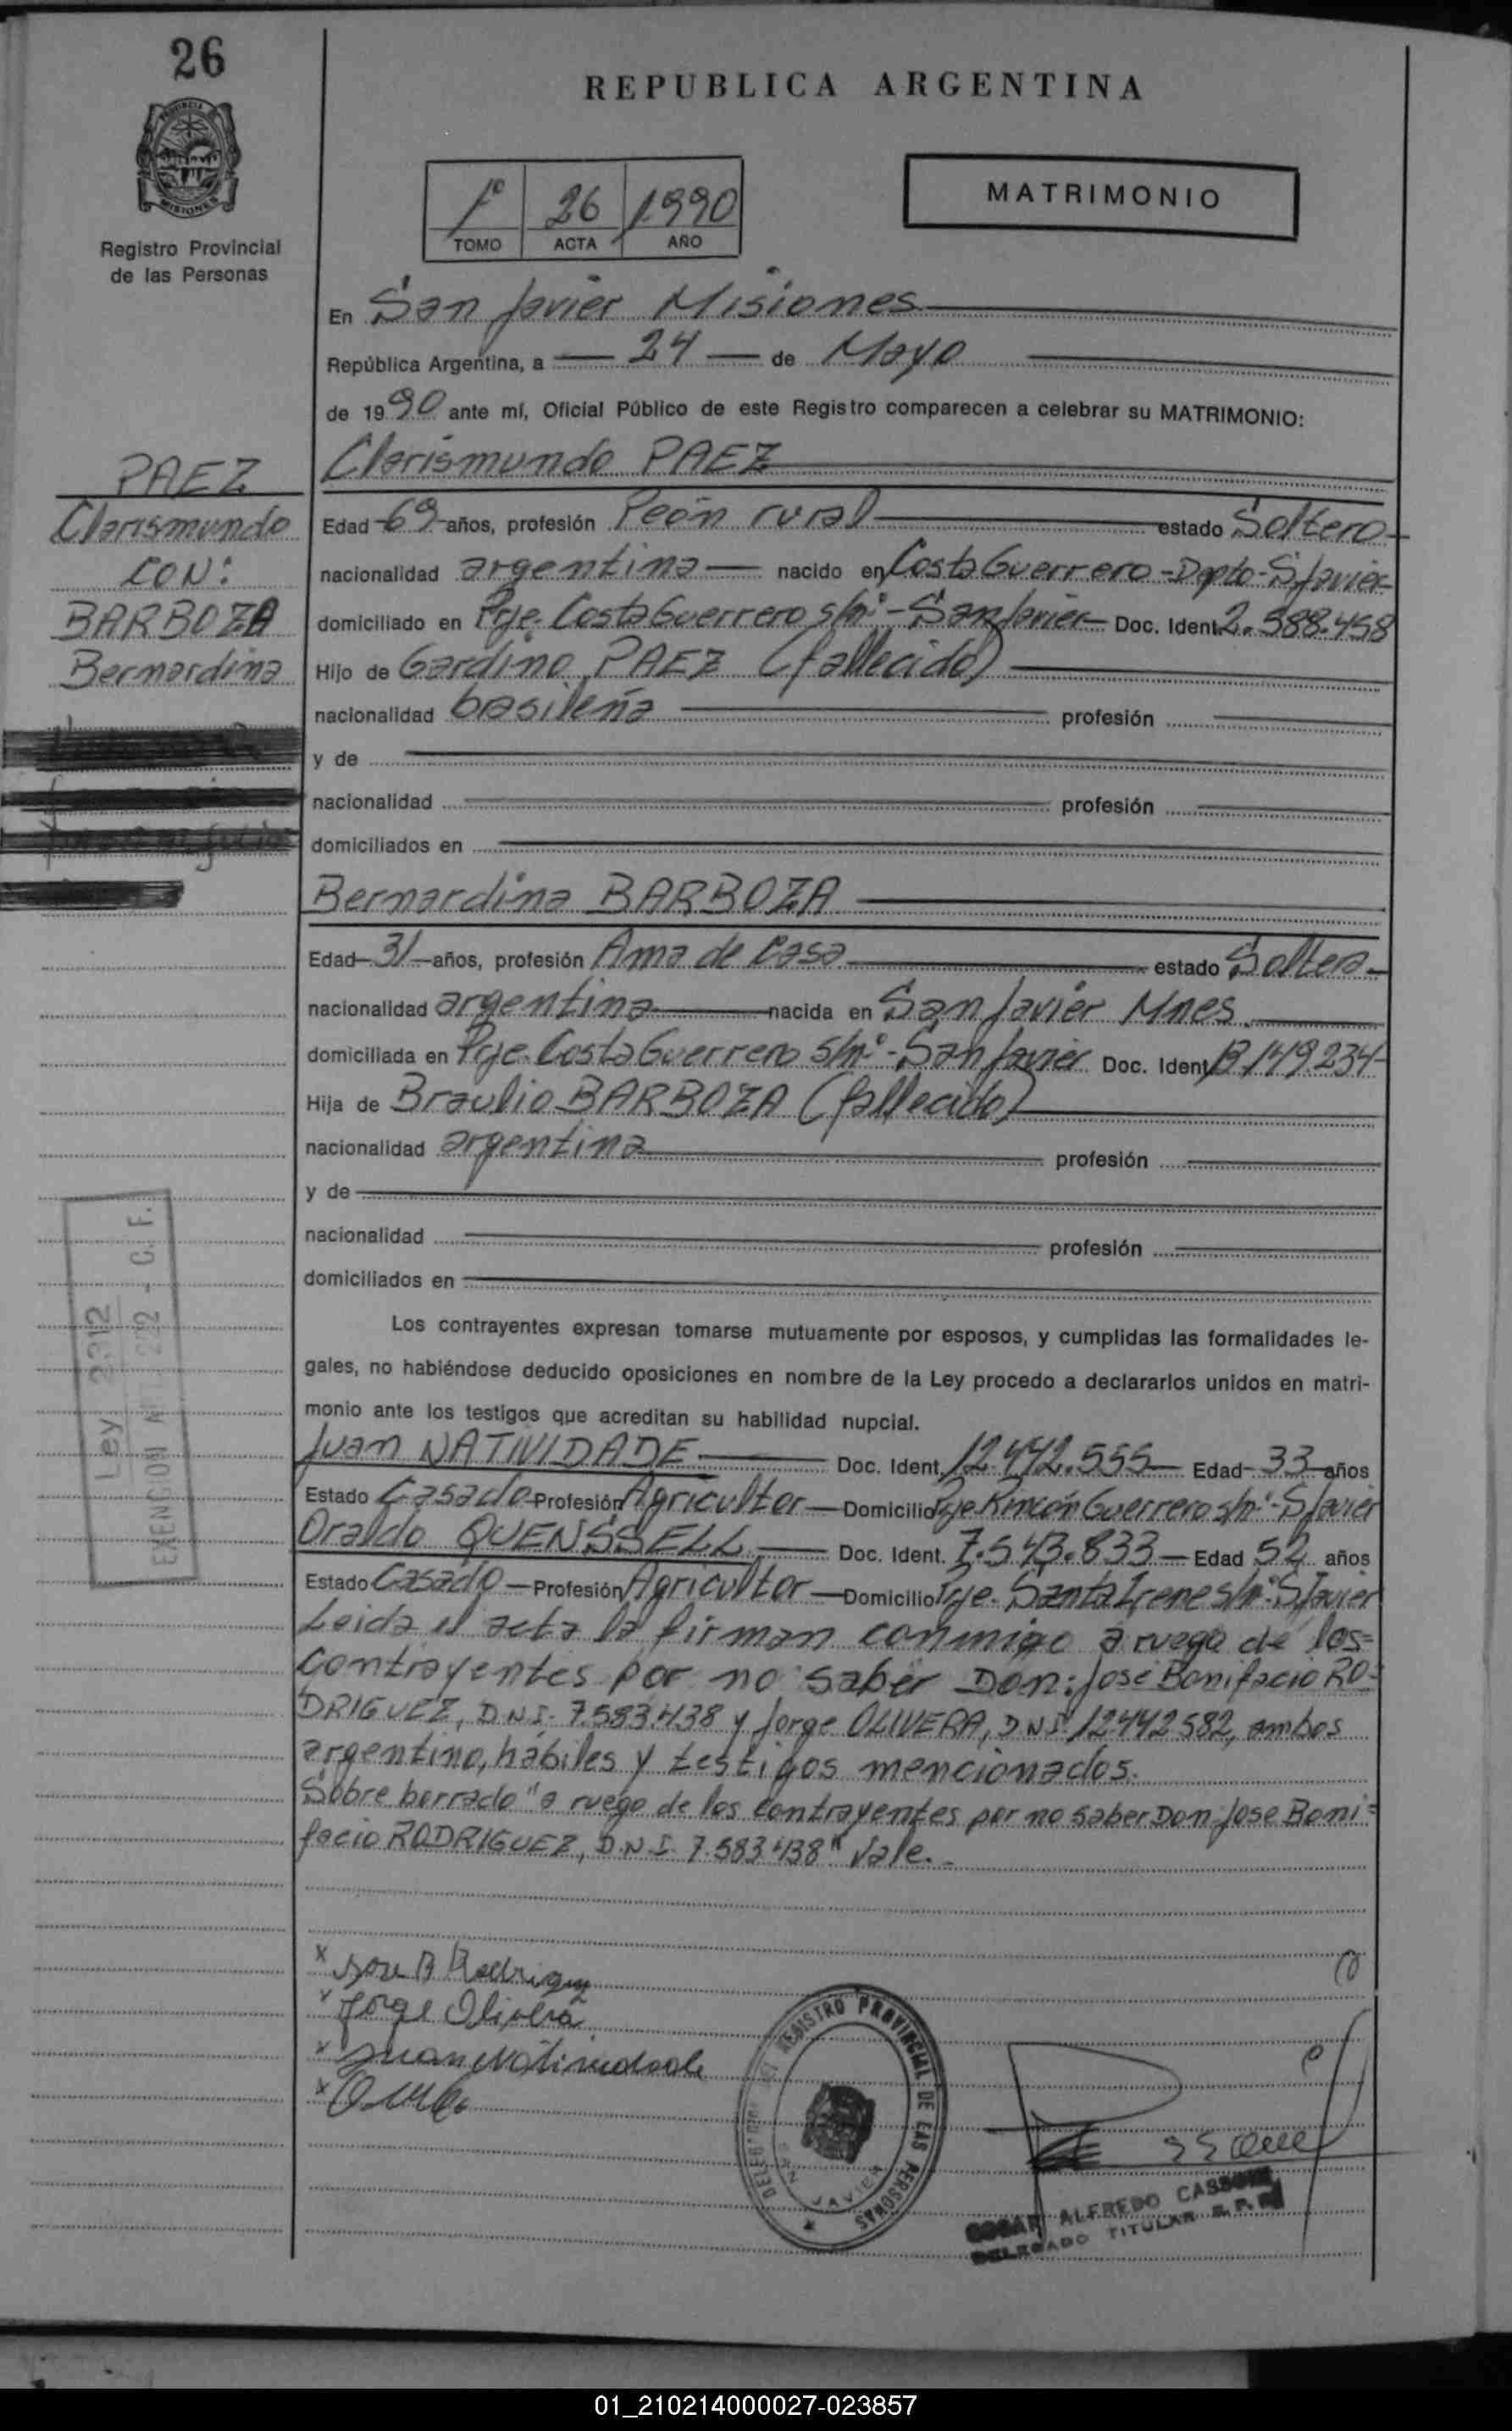 26
REPUBLICA ARGENTINA
PROVINCIA
MISIONES
Registro Provincial
de las Personas
1º 26 1990
TOMO ACTA AÑO
MATRIMONIO
En San Javier Misiones
República Argentina, a 24 de Mayo
de 1990 ante mí, Oficial Público de este Registro comparecen a celebrar su MATRIMONIO:
PAEZ
Clarismundo
CON:
BARBOZA
Bernardina
Clarismundo PAEZ
Edad 69 años, profesión Peón rural estado Soltero
nacionalidad argentina nacido en Costa Guerrero - Dpto - S Javier
domiciliado en Pje. Costa Guerrero s/nº - San Javier Doc. Ident. 2.588.458
Hijo de Gardino PAEZ (fallecido)
nacionalidad brasileña profesión
y de
nacionalidad profesión
domiciliados en
Bernardina BARBOZA
Edad 31 años, profesión Ama de casa estado Soltera
nacionalidad argentina nacida en San Javier Mnes.
domiciliada en Pje. Costa Guerrero s/nº - San Javier Doc. Ident. 13.149.234
Hija de Braulio BARBOZA (fallecido)
nacionalidad argentina profesión
y de
nacionalidad profesión
domiciliados en
Ley 2312
EXENCION ART. 292 - C. F.
Los contrayentes expresan tomarse mutuamente por esposos, y cumplidas las formalidades le-
gales, no habiéndose deducido oposiciones en nombre de la Ley procedo a declararlos unidos en matri-
monio ante los testigos que acreditan su habilidad nupcial.
Juan NATIVIDADE Doc. Ident. 12.442.555 Edad 33 años
Estado Casado Profesión Agricultor Domicilio Pje Rincón Guerrero s/nº - S Javier
Oraldo QUENSSELL Doc. Ident. 7.543.833 Edad 52 años
Estado Casado Profesión Agricultor Domicilio Pje. Santa Irene s/nº S Javier
Leida el acta la firman conmigo a ruego de los=
contrayentes por no saber Don: José Bonifacio RO=
DRIGUEZ, D.N.I. 7.583.438 y Jorge OLIVERA, D.N.I. 12.442.582, ambos
argentino, hábiles y testigos mencionados.
Sobre borrado "a ruego de los contrayentes por no saber Don: Jose Boni=
facio RODRIGUEZ, D.N.I. 7.583.438" Vale.
x Jose B Rodriguez
x Jorge Olivera
x Juan Natividade
x
REGISTRO PROVINCIAL DE LAS PERSONAS
SAN JAVIER
ALFREDO
DELEGADO TITULAR R. P. P.
01_210214000027-023857